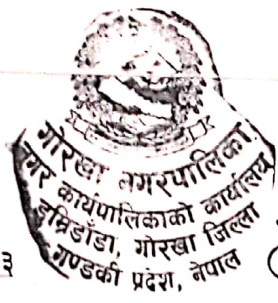 गोरखा नगरपालिका
नगर कार्यपालिकाको कार्यालय
हाम्रिडाँडा, गोरखा जिल्ला
गण्डकी प्रदेश, नेपाल
३